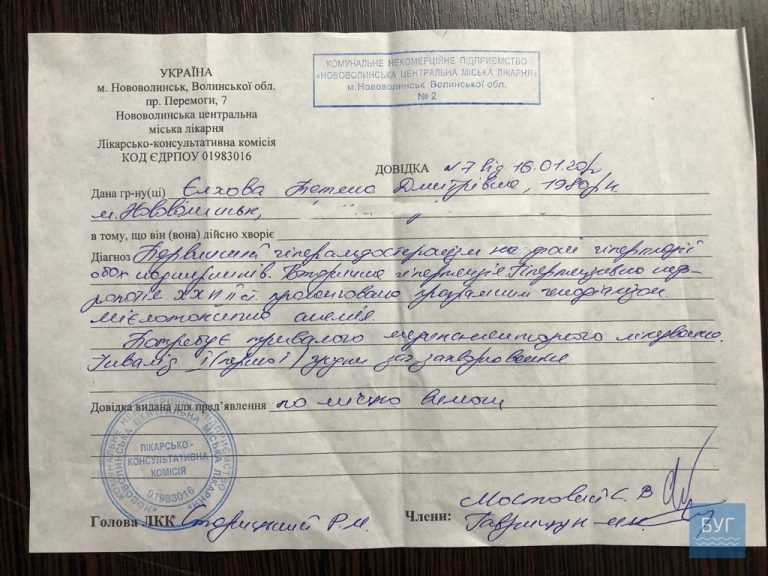 УКРАЇНА
м. Нововолинськ, Волинської обл.
пр. Перемоги, 7
Нововолинська центральна
міська лікарня
Лікарсько-консультативна комісія
КОД ЄДРПОУ 01983016
КОМУНАЛЬНЕ НЕКОМЕРЦІЙНЕ ПІДПРИЄМСТВО
«НОВОВОЛИНСЬКА ЦЕНТРАЛЬНА МІСЬКА ЛІКАРНЯ»
м.Нововолинськ Волинської обл.
№ 2
ДОВІДКА N 7 від 16.01.20р
Дана гр-ну(ці) Дмитрівна, 1980р/н
м. Нововолинськ,
в тому, що він (вона) дійсно хворіє
Діагноз Первинний гіперальдостеронізм на фоні гіперплазії
обох наднирників. Вторинна гіпертензія. Гіпертензивна неф-
ропатія ХХН ст. програмним гемодіалізом.
анемія
Потребує тривалого медикаментозного лікування.
Інвалід І (першої) групи заг. захворювання
Довідка видана для пред’явлення по місцю вимоги
ЛІКАРСЬКО-
КОНСУЛЬТАТИВНА
КОМІСІЯ
01983016
Голова ЛКК Р.М.
Члени: Мостовий С. В
Гаврищук
БУГ